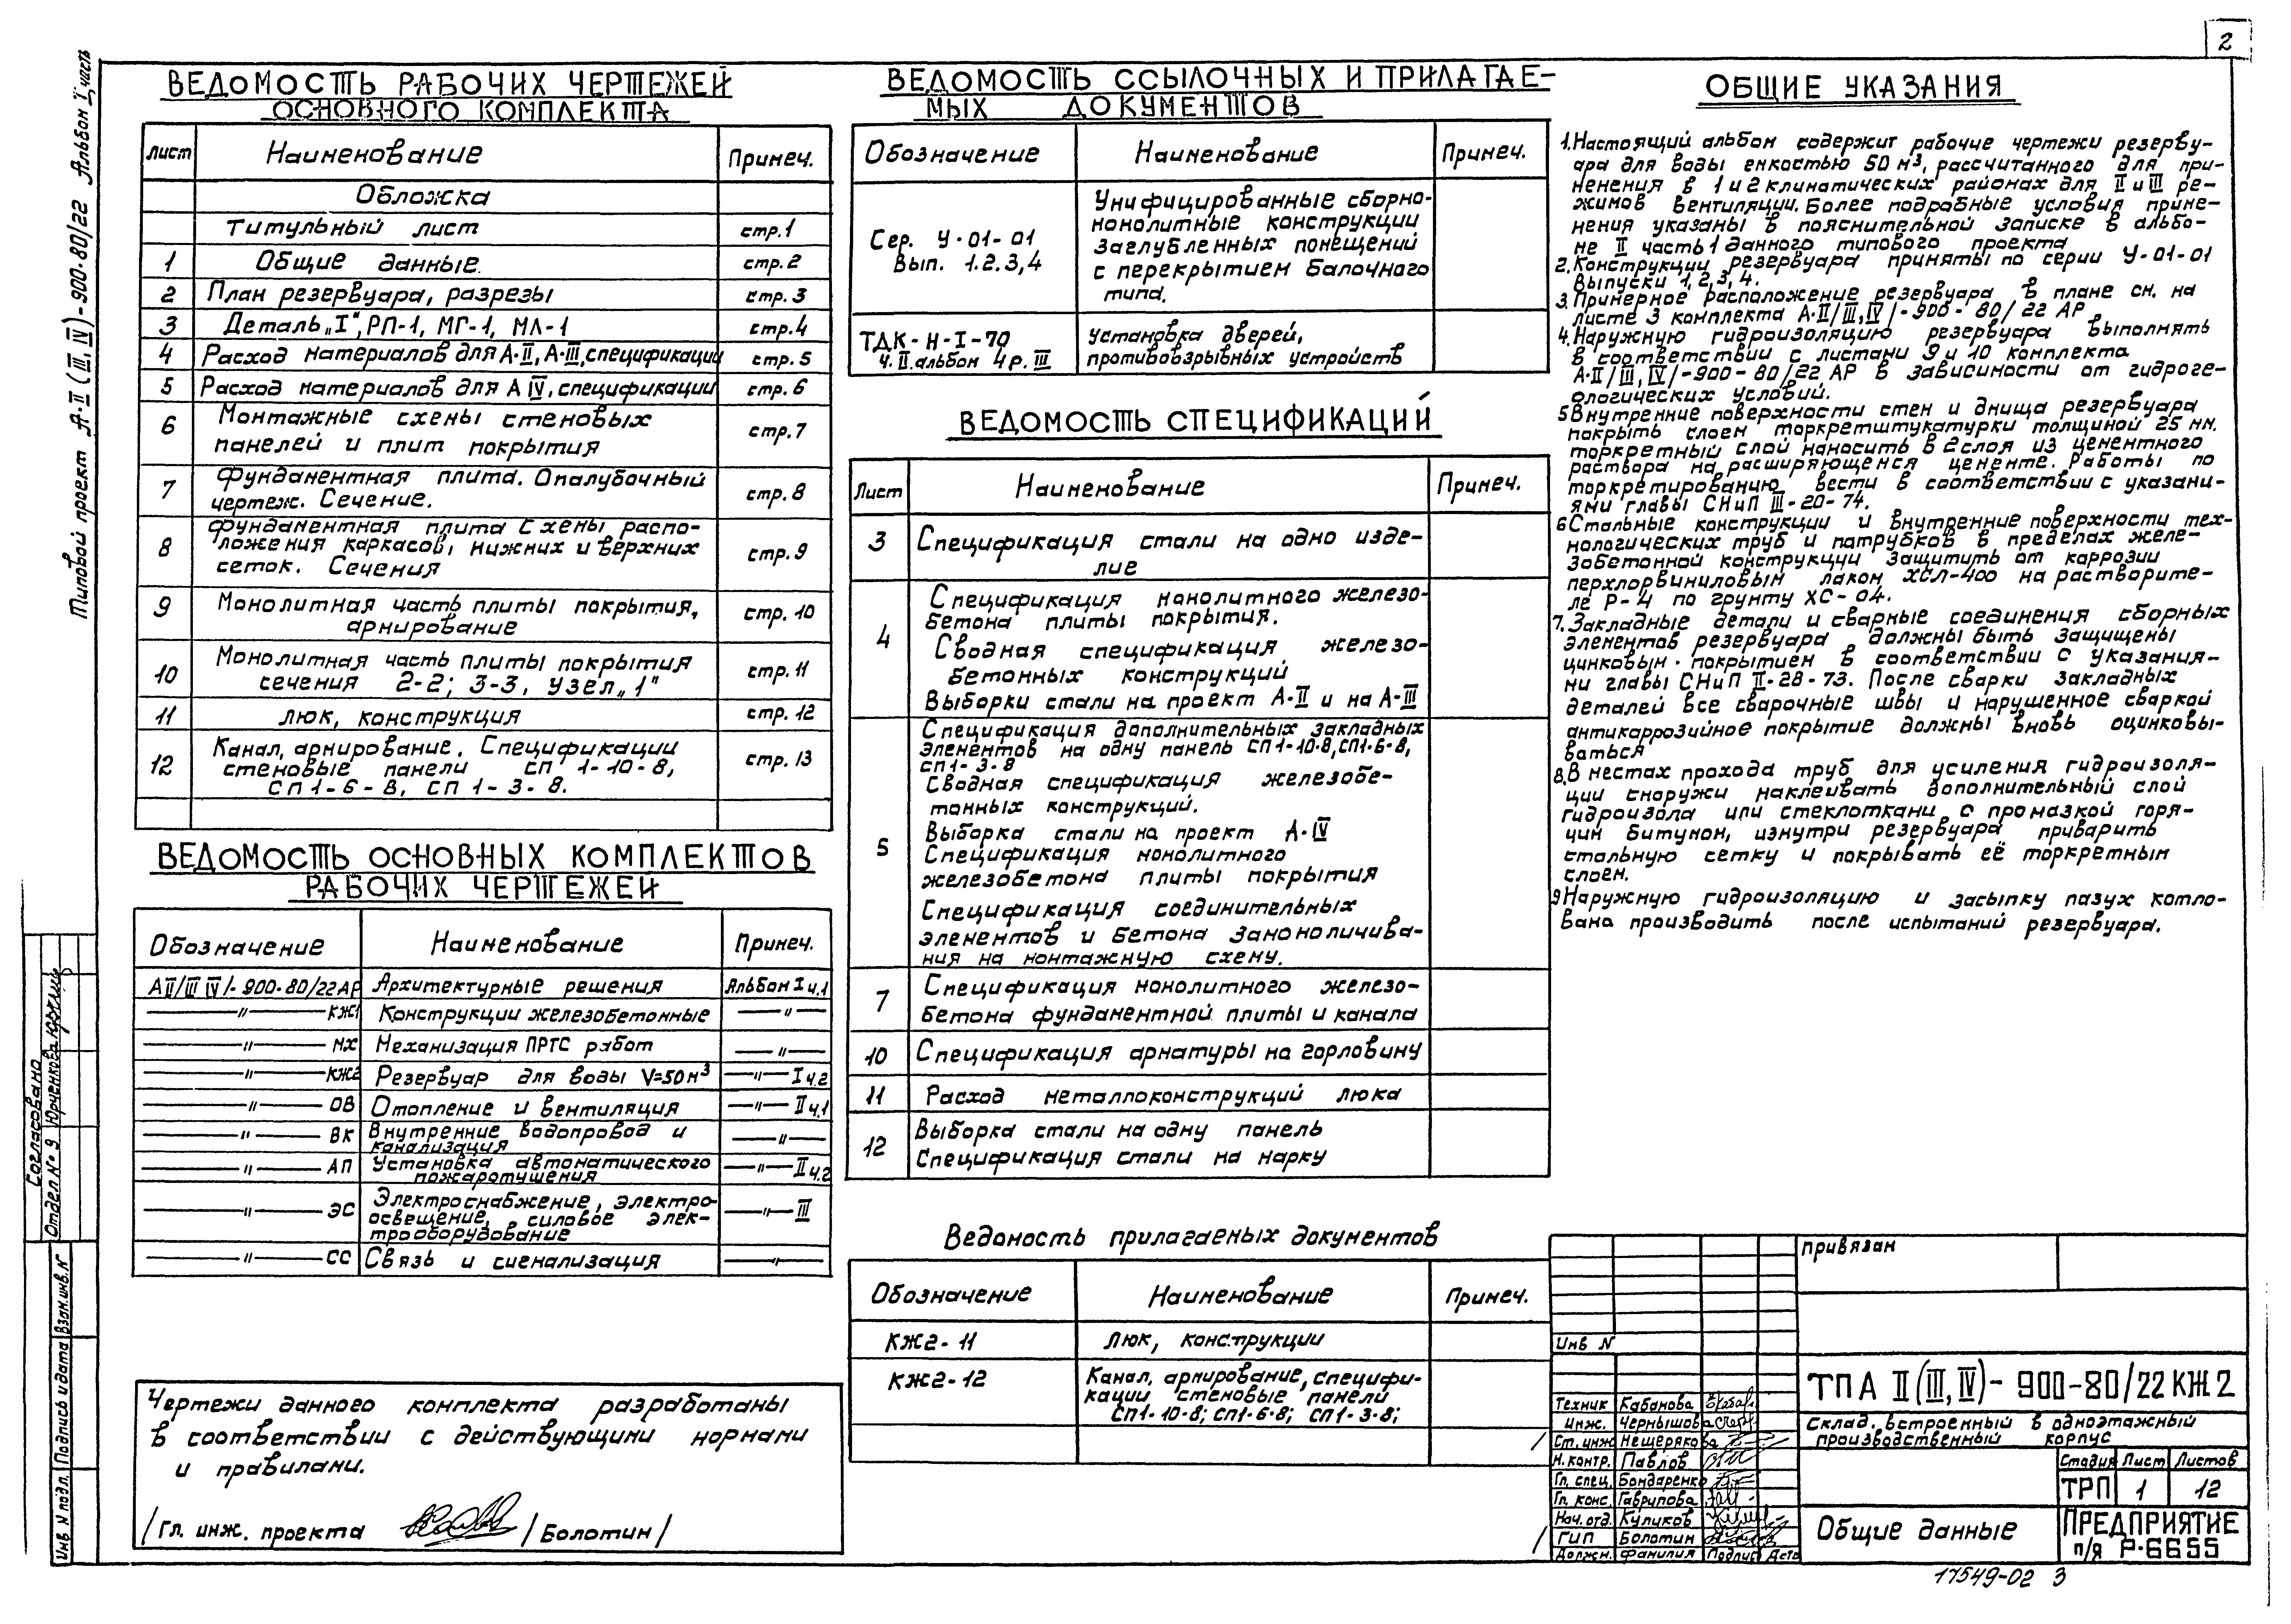 2
Типовой проект А-II (III, IV)-900-80/22 Альбом I часть
ВЕДОМОСТЬ РАБОЧИХ ЧЕРТЕЖЕЙ
ОСНОВНОГО КОМПЛЕКТА
Лист Наименование Примеч.
Обложка
Титульный лист стр.1
1 Общие данные стр.2
2 План резервуара, разрезы стр.3
3 Деталь „I", РП-1, МГ-1, МЛ-1 стр.4
4 Расход материалов для А-II, А-III, спецификации стр.5
5 Расход материалов для А IV, спецификации стр.6
6 Монтажные схемы стеновых
панелей и плит покрытия стр.7
7 Фундаментная плита. Опалубочный
чертеж. Сечение. стр.8
8 Фундаментная плита Схемы распо-
ложения каркасов, нижних и верхних
сеток. Сечения стр.9
9 Монолитная часть плиты покрытия,
армирование стр.10
10 Монолитная часть плиты покрытия
сечения 2-2; 3-3, узел „1" стр.11
11 Люк, конструкция стр.12
12 Канал, армирование. Спецификации
стеновые панели СП 1-10-8,
СП1-6-8, СП 1-3-8. стр.13
ВЕДОМОСТЬ ОСНОВНЫХ КОМПЛЕКТОВ
РАБОЧИХ ЧЕРТЕЖЕЙ
Обозначение Наименование Примеч.
АII/III IV/-900-80/22 АР Архитектурные решения Альбом I ч.1
—"— КЖ1 Конструкции железобетонные —"—
—"— МХ Механизация ПРТС работ —"—
—"— КЖ2 Резервуар для воды V=50м³ —"— I ч.2
—"— ОВ Отопление и вентиляция —"— II ч.1
—"— ВК Внутренние водопровод и
канализация —"—
—"— АП Установка автоматического
пожаротушения —"— II ч.2
—"— ЭС Электроснабжение, электро-
освещение, силовое элек-
трооборудование —"— III
—"— СС Связь и сигнализация —"—
Чертежи данного комплекта разработаны
в соответствии с действующими нормами
и правилами.
/Гл. инж. проекта /Болотин/
ВЕДОМОСТЬ ССЫЛОЧНЫХ И ПРИЛАГАЕ-
МЫХ ДОКУМЕНТОВ
Обозначение Наименование Примеч.
Сер. У-01-01
Вып. 1.2.3,4
Унифицированные сборно-
монолитные конструкции
заглубленных помещений
с перекрытием балочного
типа.
ТДК-Н-I-70
ч.II альбом 4 р. III
Установка дверей,
противовзрывных устройств
ВЕДОМОСТЬ СПЕЦИФИКАЦИЙ
Лист Наименование Примеч.
3 Спецификация стали на одно изде-
лие
4 Спецификация монолитного железо-
бетона плиты покрытия.
Сводная спецификация железо-
бетонных конструкций
Выборки стали на проект А-II и на А-III
5 Спецификация дополнительных закладных
элементов на одну панель СП1-10-8, СП1-6-8,
СП1-3-8
Сводная спецификация железобе-
тонных конструкций.
Выборка стали на проект А-IV
Спецификация монолитного
железобетона плиты покрытия
Спецификация соединительных
элементов и бетона замоноличива-
ния на монтажную схему.
7 Спецификация монолитного железо-
бетона фундаментной плиты и канала
10 Спецификация арматуры на горловину
11 Расход металлоконструкций люка
12 Выборка стали на одну панель
Спецификация стали на марку
Ведомость прилагаемых документов
Обозначение Наименование Примеч.
КЖ2-11 Люк, конструкции
КЖ2-12 Канал, армирование, специфи-
кации стеновые панели
СП1-10-8; СП1-6-8; СП1-3-8;
ОБЩИЕ УКАЗАНИЯ
1. Настоящий альбом содержит рабочие чертежи резерву-
ара для воды емкостью 50 м³, рассчитанного для при-
менения в 1 и 2 климатических районах для II и III ре-
жимов вентиляции. Более подробные условия приме-
нения указаны в пояснительной записке в альбо-
ме II часть 1 данного типового проекта
2. Конструкции резервуара приняты по серии У-01-01
Выпуски 1, 2, 3, 4.
3. Примерное расположение резервуара в плане см. на
листе 3 комплекта А-II/III, IV/-900-80/22 АР
4. Наружную гидроизоляцию резервуара выполнять
в соответствии с листами 9 и 10 комплекта
А-II/III, IV/-900-80/22 АР в зависимости от гидроге-
ологических условий.
5 Внутренние поверхности стен и днища резервуара
покрыть слоем торкретштукатурки толщиной 25 мм.
Торкретный слой наносить в 2 слоя из цементного
раствора на расширяющемся цементе. Работы по
торкретированию вести в соответствии с указани-
ями главы СНиП III-20-74.
6 Стальные конструкции и внутренние поверхности тех-
нологических труб и патрубков в пределах желе-
зобетонной конструкции защитить от каррозии
перхлорвиниловым лаком ХСЛ-400 на растворите-
ле Р-4 по грунту ХС-04.
7. Закладные детали и сварные соединения сборных
элементов резервуара должны быть защищены
цинковым покрытием в соответствии с указания-
ми главы СНиП II-28-73. После сварки закладных
деталей все сварочные швы и нарушенное сваркой
антикаррозийное покрытие должны вновь оцинковы-
ваться
8. В местах прохода труб для усиления гидроизоля-
ции снаружи наклеивать дополнительный слой
гидроизола или стеклоткани с промазкой горя-
чим битумом, изнутри резервуара приварить
стальную сетку и покрывать её торкретным
слоем.
9 Наружную гидроизоляцию и засыпку пазух котло-
вана производить после испытаний резервуара.
Согласовано
Отдел № 9 Юрченкова
Инв N подл. Подпись и дата Взам.инв.N
привязан
Инв N
ТПА II (III, IV)- 900-80/22 КЖ2
Склад, встроенный в одноэтажный
производственный корпус
Техник Кабанова
инж. Чернышова
Ст. инж Мещерякова
Н. контр. Павлов
Гл. спец. Бондаренко
Гл. конс. Гаврилова
Нач. отд. Куликов
ГИП Болотин
Должн. Фамилия Подпис Дата
Стадия Лист Листов
ТРП 1 12
Общие данные
ПРЕДПРИЯТИЕ
п/я Р-6655
17549-02 3